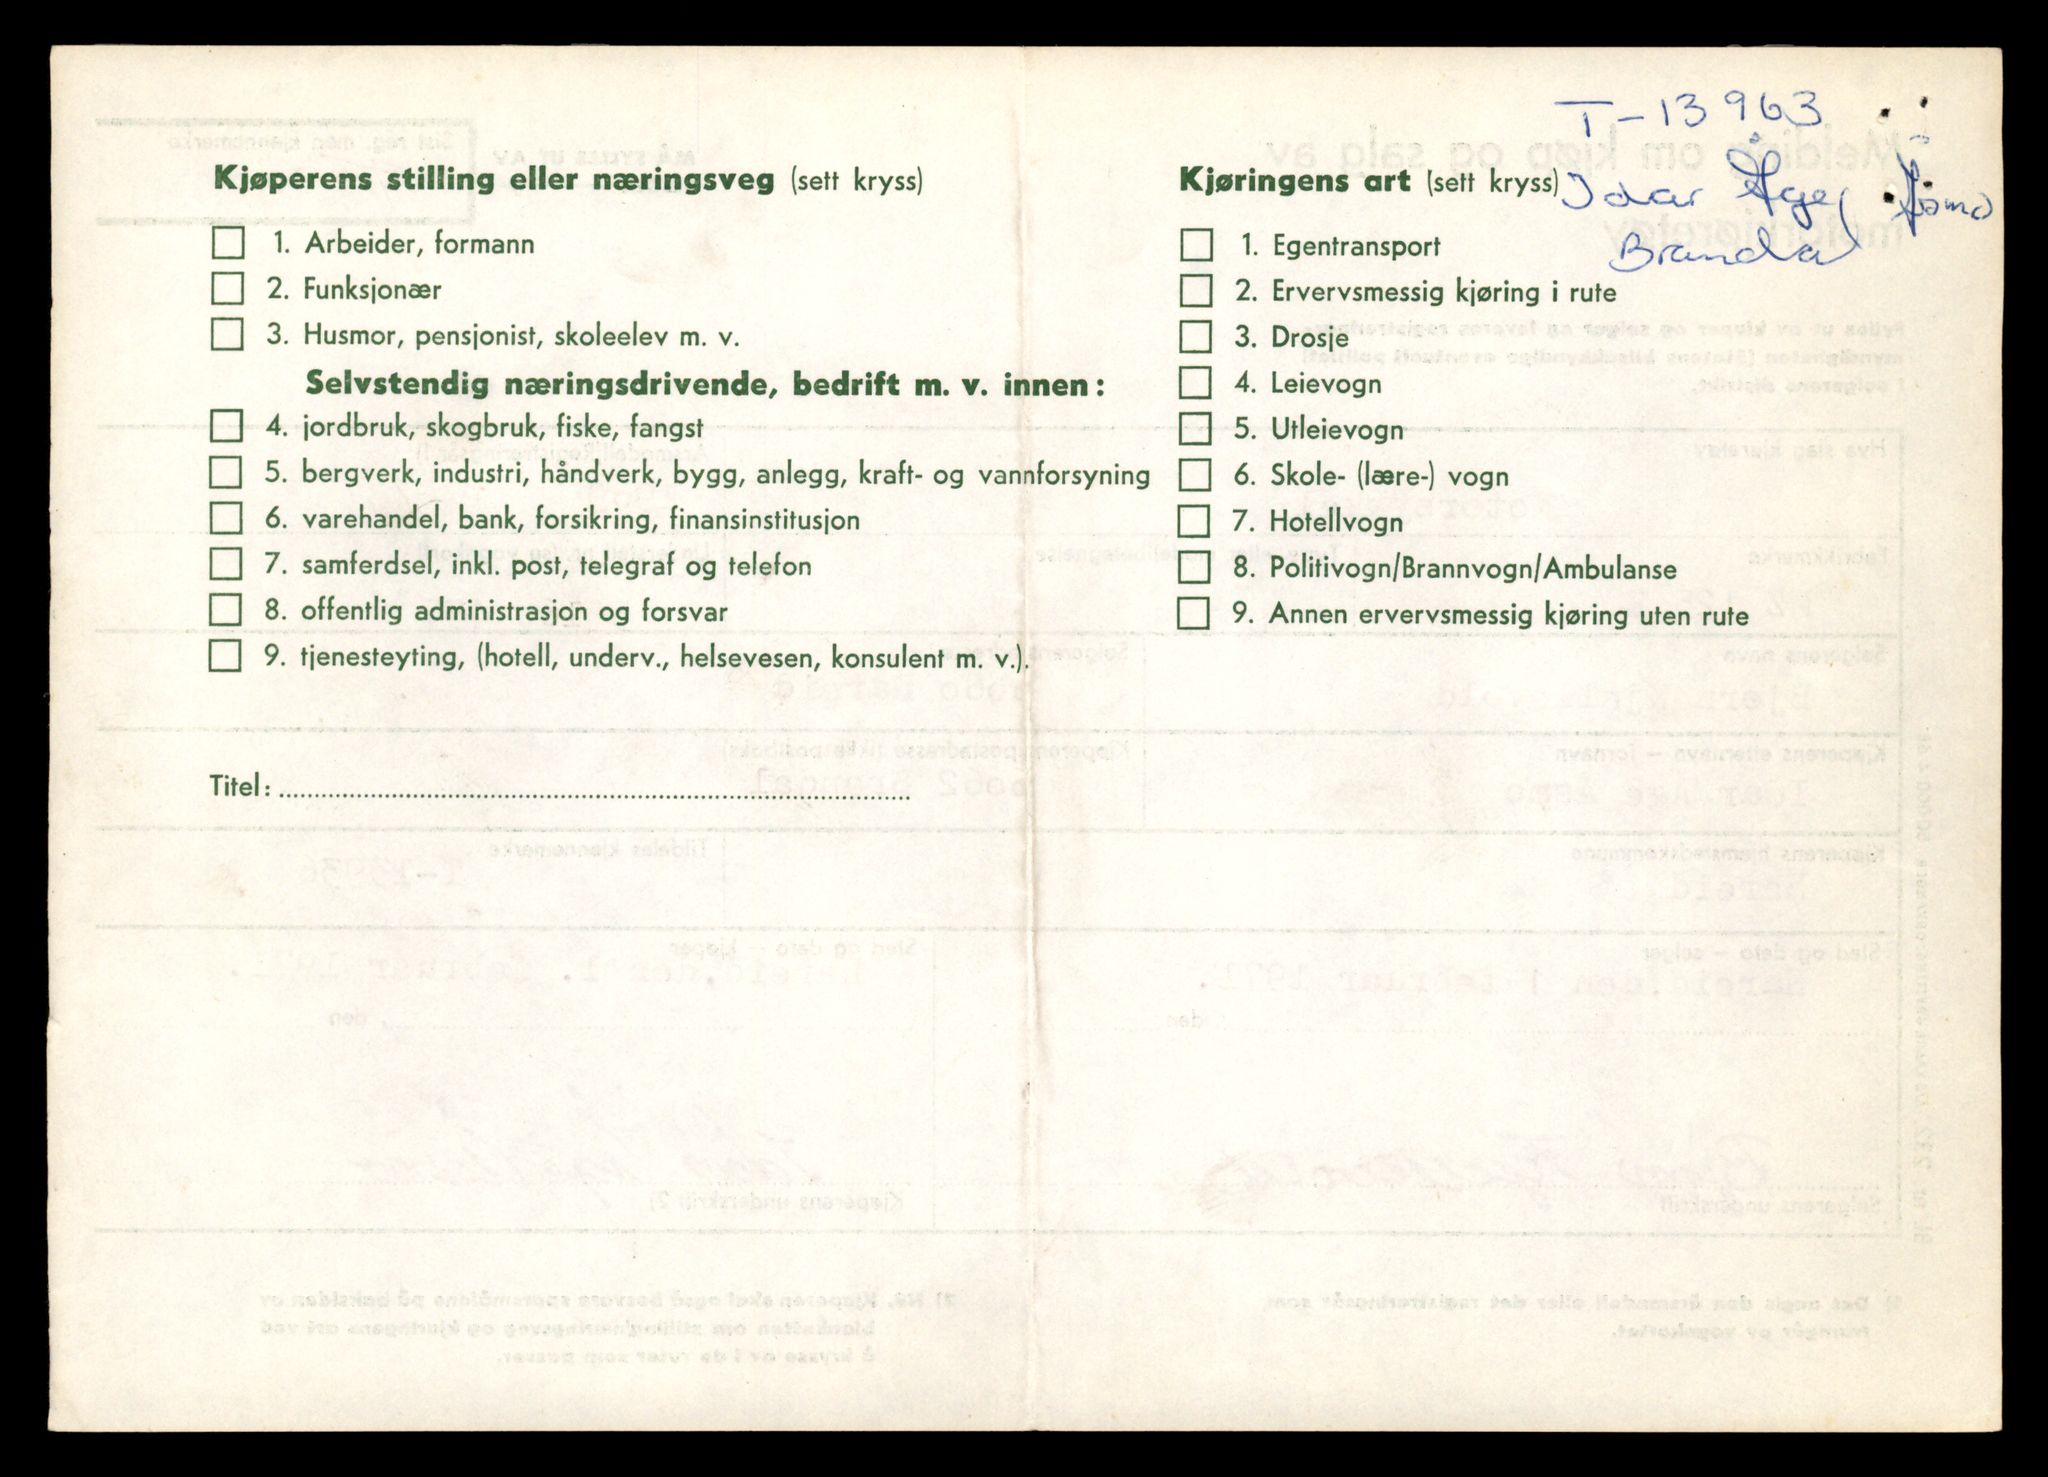 T-13963
Idar Åge Åsmo
Brandal
Kjøperens stilling eller næringsveg (sett kryss)
1. Arbeider, formann
2. Funksjonær
3. Husmor, pensjonist, skoleelev m. v.
Selvstendig næringsdrivende, bedrift m. v. innen:
4. jordbruk, skogbruk, fiske, fangst
5. bergverk, industri, håndverk, bygg, anlegg, kraft- og vannforsyning
6. varehandel, bank, forsikring, finansinstitusjon
7. samferdsel, inkl. post, telegraf og telefon
8. offentlig administrasjon og forsvar
9. tjenesteyting, (hotell, underv., helsevesen, konsulent m. v.).
Titel:
Kjøringens art (sett kryss)
1. Egentransport
2. Ervervsmessig kjøring i rute
3. Drosje
4. Leievogn
5. Utleievogn
6. Skole- (lære-) vogn
7. Hotellvogn
8. Politivogn/Brannvogn/Ambulanse
9. Annen ervervsmessig kjøring uten rute